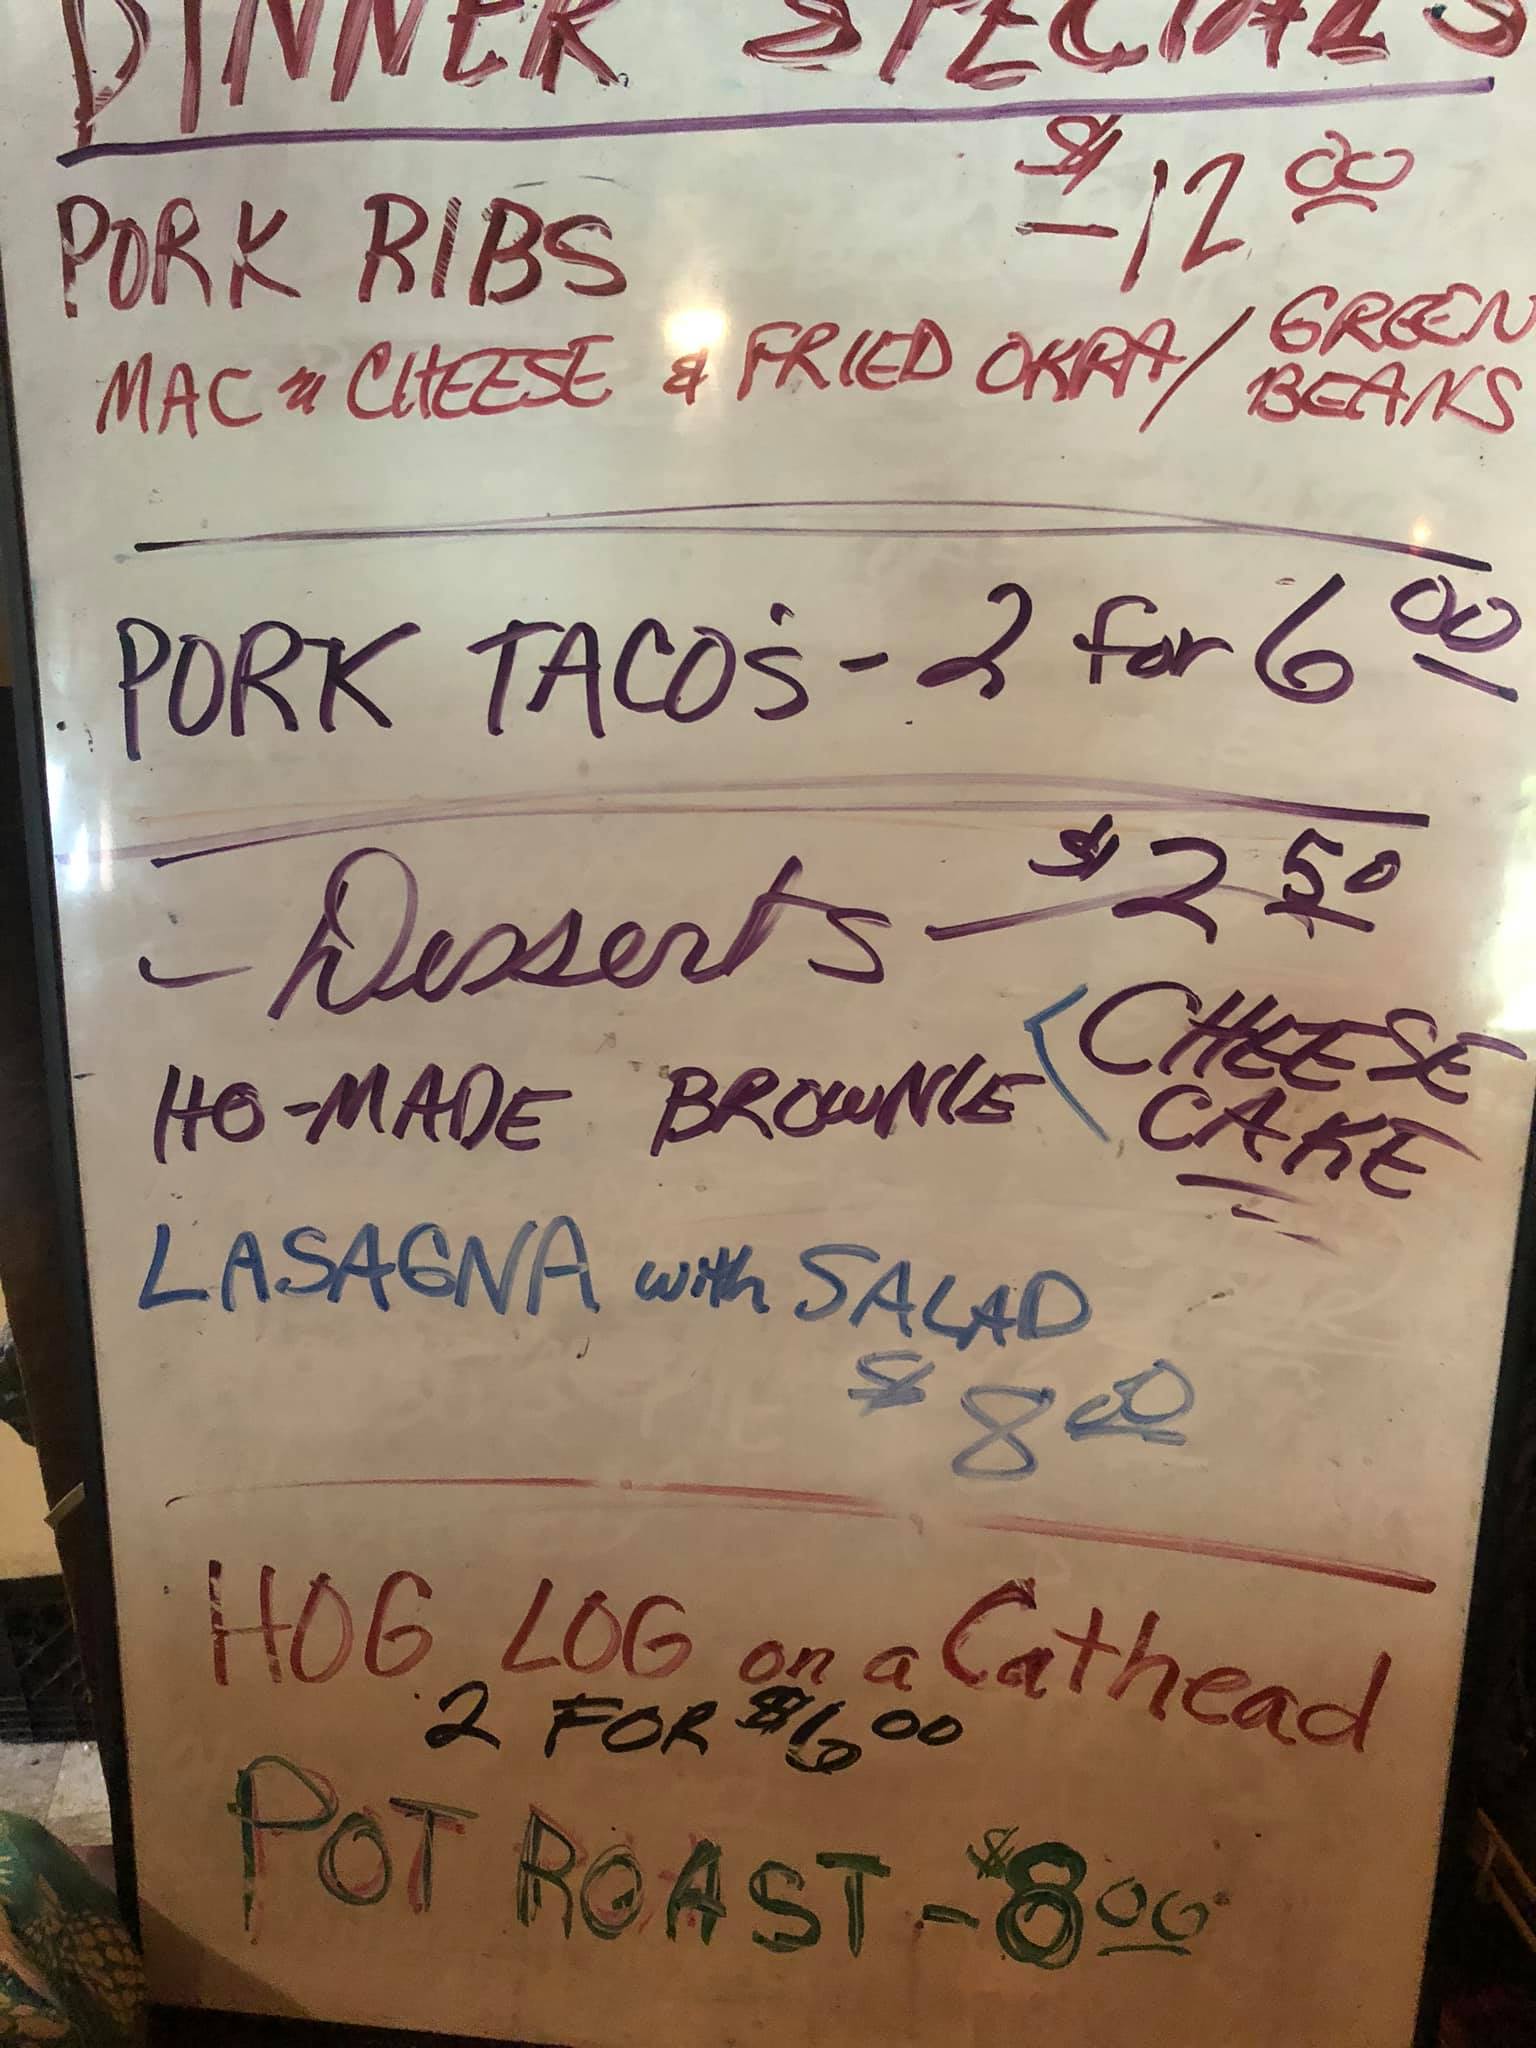 DINNER SPECIALS
PORK RIBS $12 00
MAC n CHEESE & FRIED OKRA / GREEN BEANS
PORK TACO'S - 2 for 6 00
- Desserts - $2 50
HO-MADE BROWNIE < CHEESE CAKE
LASAGNA with SALAD
$8 00
HOG LOG on a Cathead
2 FOR $6 00
POT ROAST - $8 00